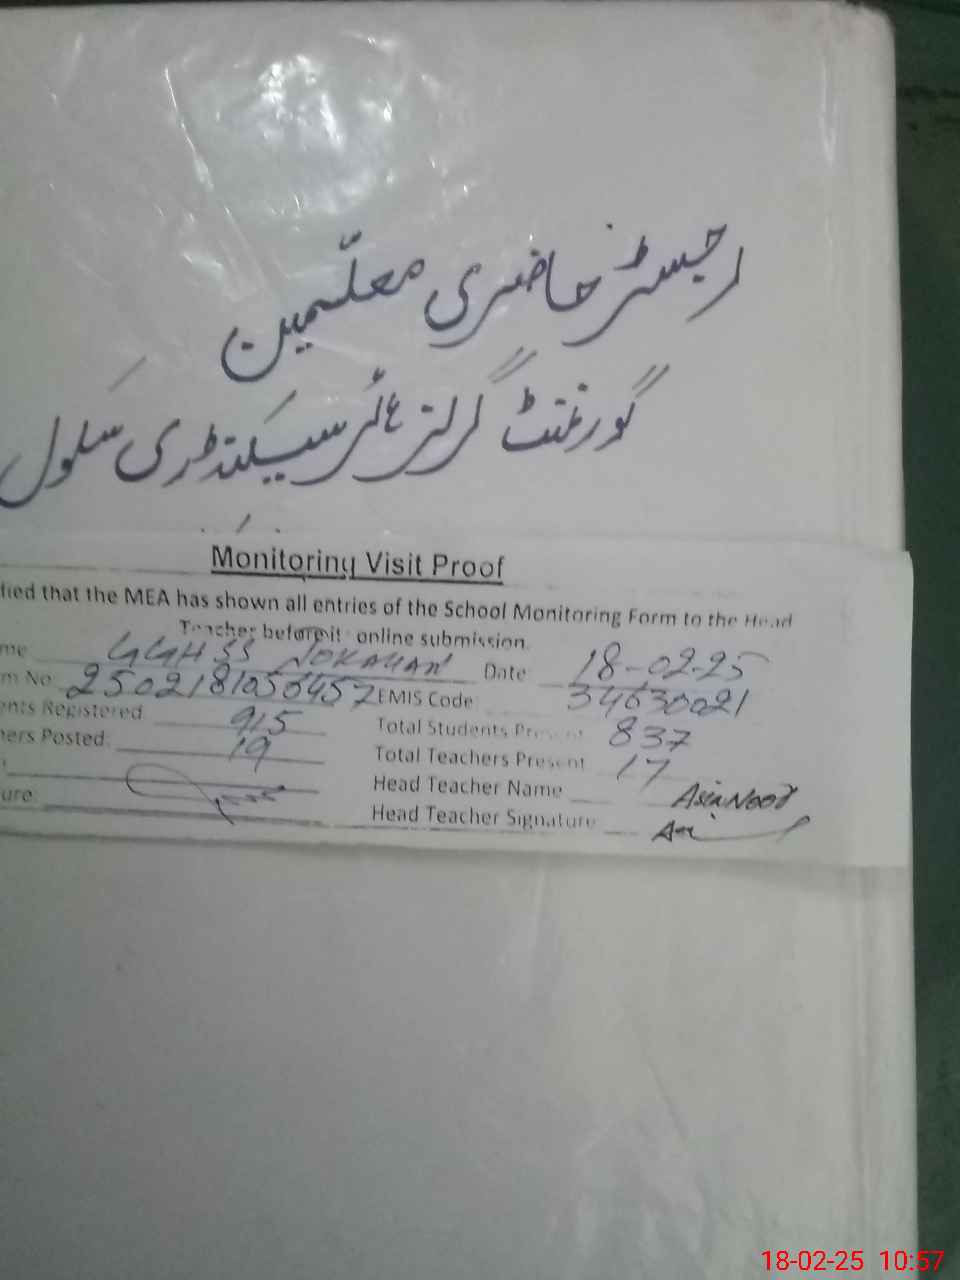 رجسٹر حاضری معلّمین
گورنمنٹ گرلز ہائر سیکنڈری سکول
Monitoring Visit Proof
fied that the MEA has shown all entries of the School Monitoring Form to the Head
Teacher before it online submission.
me GGHSS Date 18-02-25
m No. 2502181050457 EMIS Code 34630021
ents Registered 915 Total Students Present 837
ers Posted: 19 Total Teachers Present 17
Head Teacher Name Asia Noor
ure: Head Teacher Signature
18-02-25 10:57